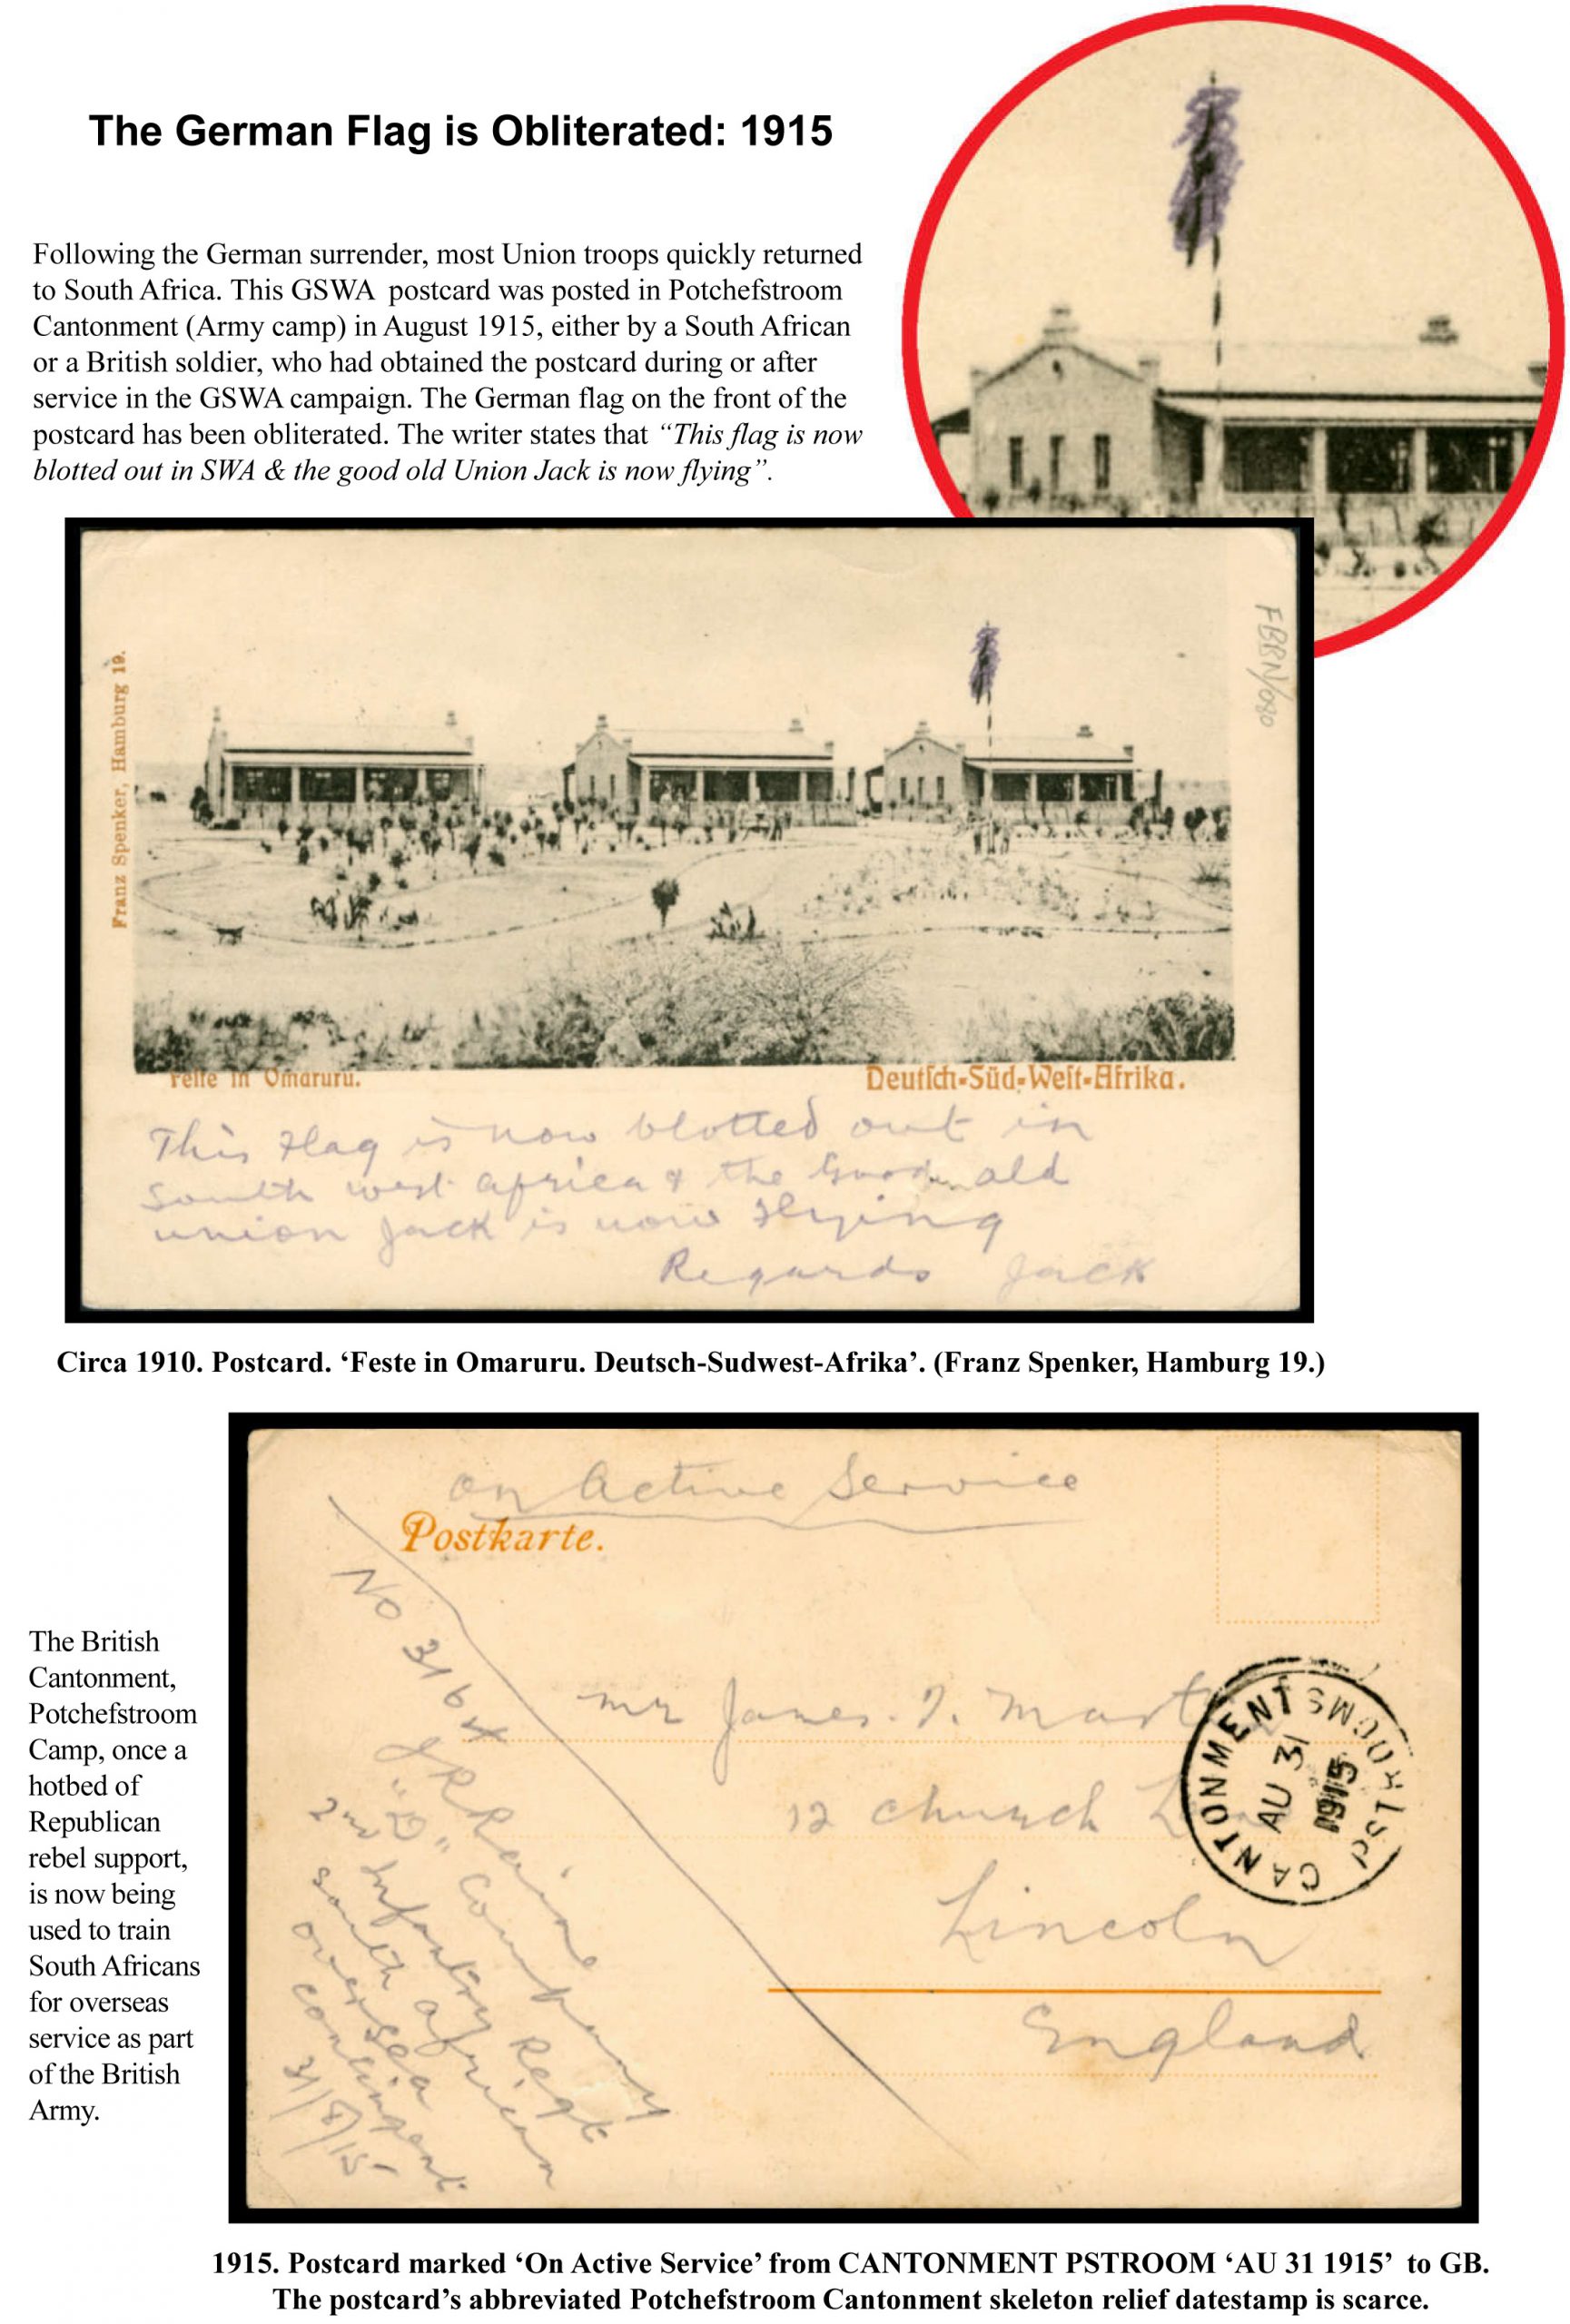 The German Flag is Obliterated: 1915
Following the German surrender, most Union troops quickly returned
to South Africa. This GSWA postcard was posted in Potchefstroom
Cantonment (Army camp) in August 1915, either by a South African
or a British soldier, who had obtained the postcard during or after
service in the GSWA campaign. The German flag on the front of the
postcard has been obliterated. The writer states that “This flag is now
blotted out in SWA & the good old Union Jack is now flying”.
Franz Spenker, Hamburg 19.
FBBN/080
Feste in Omaruru.
Deutsch-Süd-West-Afrika.
This Flag is now blotted out in
South west africa & the Good old
union Jack is now Flying
Regards Jack
Circa 1910. Postcard. ‘Feste in Omaruru. Deutsch-Sudwest-Afrika’. (Franz Spenker, Hamburg 19.)
The British
Cantonment,
Potchefstroom
Camp, once a
hotbed of
Republican
rebel support,
is now being
used to train
South Africans
for overseas
service as part
of the British
Army.
on Active Service
Postkarte.
No 3164
J R Raine
"D" Company
2nd Infantry Regt
South African
oversea
contingent
31/8/15
mr James.
12 church
Lincoln
England
CANTONMENT
AU 31
1915
1915. Postcard marked ‘On Active Service’ from CANTONMENT PSTROOM ‘AU 31 1915’ to GB.
The postcard’s abbreviated Potchefstroom Cantonment skeleton relief datestamp is scarce.